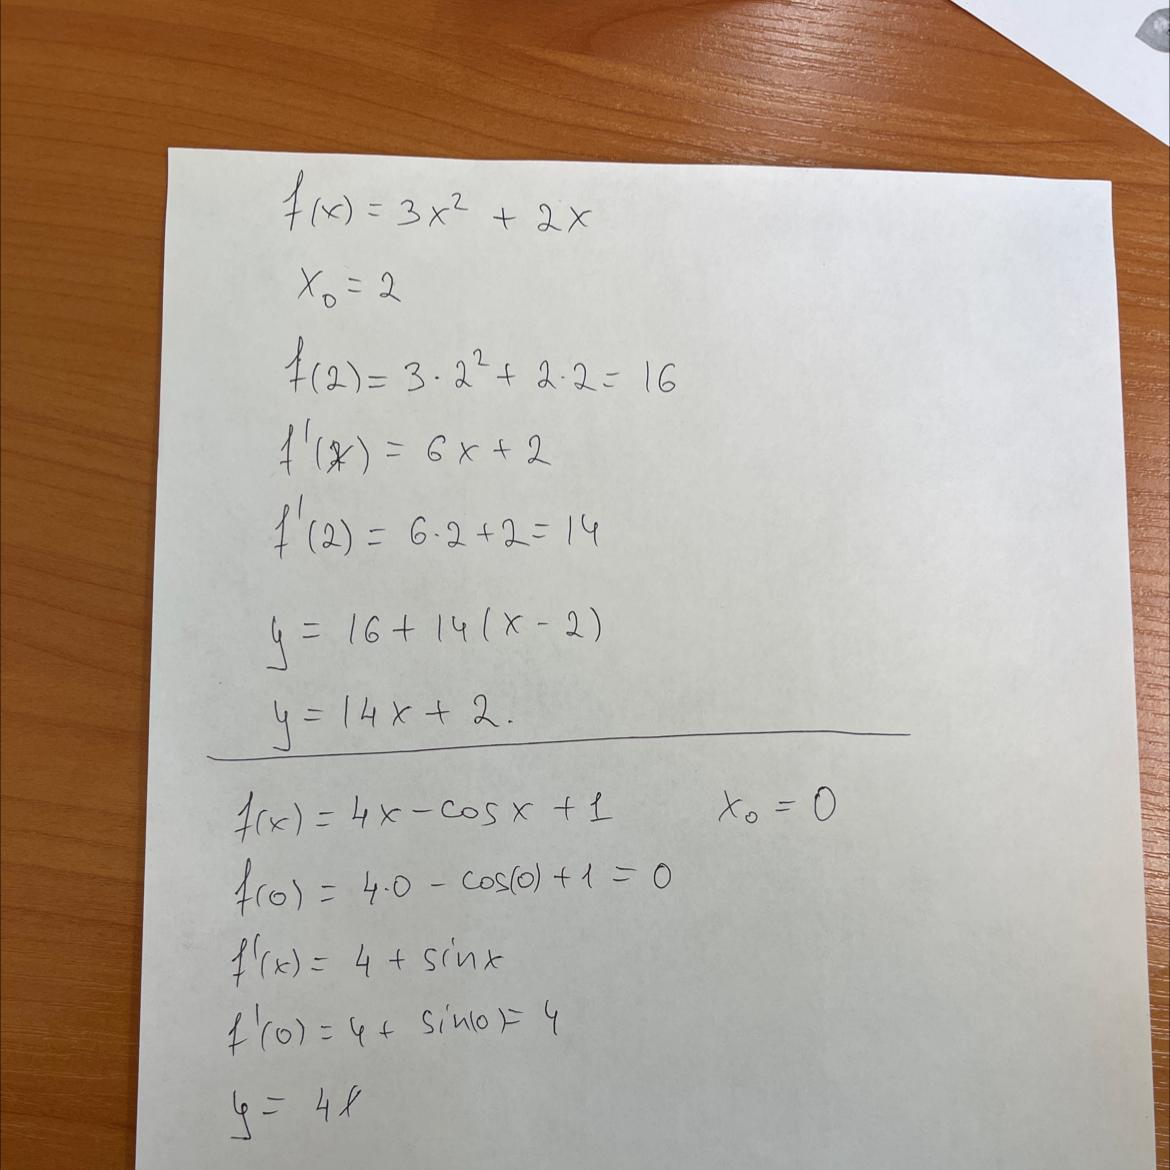 f(x) = 3x² + 2x
x₀ = 2
f(2) = 3·2² + 2·2 = 16
f'(x) = 6x + 2
f'(2) = 6·2 + 2 = 14
y = 16 + 14(x - 2)
y = 14x + 2.
f(x) = 4x - cos x + 1 x₀ = 0
f(0) = 4·0 - cos(0) + 1 = 0
f'(x) = 4 + sin x
f'(0) = 4 + sin(0) = 4
y = 4x